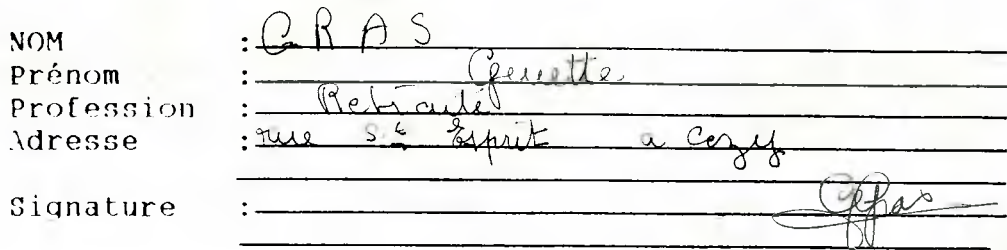 NOM : GRAS
Prénom : Ginette
Profession : Retraité
Adresse : rue St Esprit a Cezy
Signature :